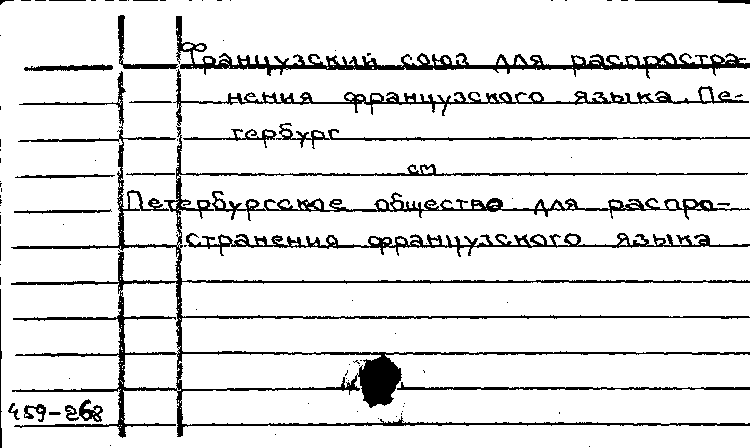 Французский союз для распростра-
нения французского языка. Пе-
тербург
см
Петербургское общество для распро-
странения французского языка
459-268